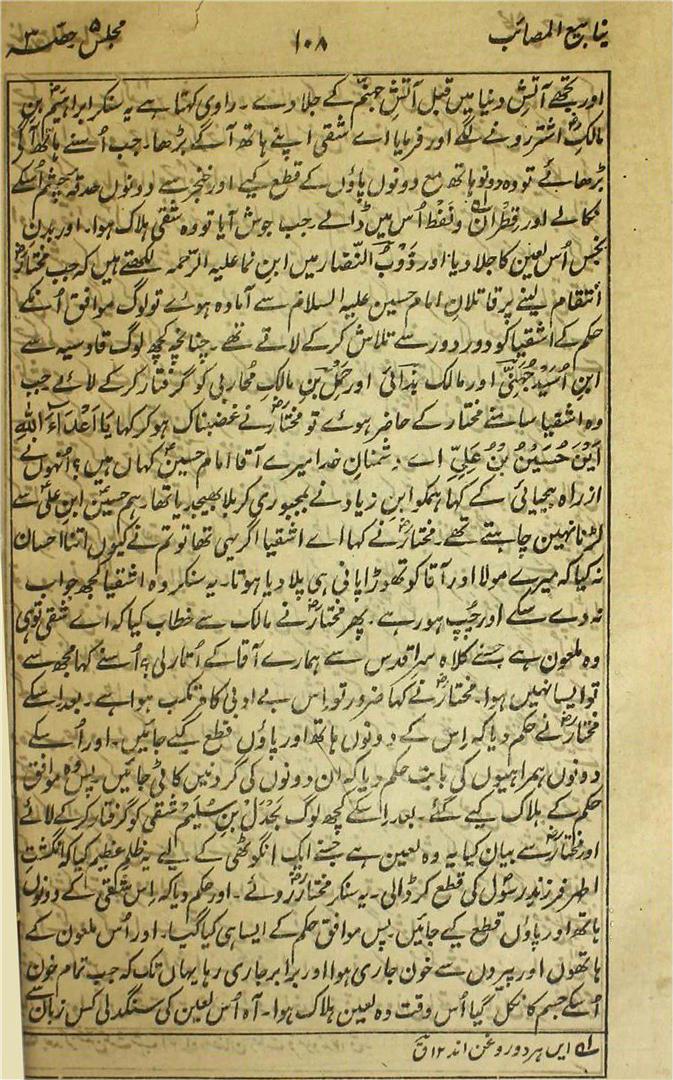 ینابیع المصائب ۱۰۸ مجلس ۵ حصّہ ۳
اور تجھے آتشِ دنیا میں قبل آتشِ جہنّم کے جلا دے۔ راوی کہتا ہے یہ سنکر ابراہیم بن
مالک اشتر رونے لگے اور فرمایا اے شقی اپنے ہاتھ آگے بڑھا۔ جب اُسنے ہاتھ آگے
بڑھائے تو وہ دونو ہاتھ مع دونوں پاؤں کے قطع کیے اور خنجر سے دونوں حدقۂ چشم اُسکے
نکالے اور قِطْران و نَفْط اُس میں ڈالے۔ جب جوش آیا تو وہ شقی ہلاک ہوا۔ اور بدن
نجس اُس لعین کا جلا دیا اور ذَوْبُ النّضار میں ابن نما علیہ الرحمہ لکھتے ہیں کہ جب مختارؓ
انتقام لینے پر قاتلانِ امام حسین علیہ السلام سے آمادہ ہوئے تو لوگ موافق اُنکے
حکم کے اشقیا کو دور دور سے تلاش کر کے لاتے تھے۔ چنانچہ کچھ لوگ قادسیہ سے
ابن اُسَیْد جُہَنِیّ اور مالک بدائی اور حمل بن مالک محاربی کو گرفتار کر کے لائے جب
وہ اشقیا سامنے مختار کے حاضر ہوئے تو مختارؓ نے غضبناک ہو کر کہا یَا اَعْدَاءَ اللّٰہِ
اَیْنَ حُسَیْنُ بْنُ عَلِیّ اے دشمنانِ خدا میرے آقا امام حسینؑ کہاں ہیں؟ اُنہوں نے
از راہ بیحیائی کے کہا ہمکو ابن زیاد نے بمجبوری کربلا بھیجدیا تھا۔ ہم حسین ابن علیؑ سے
لڑنا نہین چاہتے تھے۔ مختارؓ نے کہا اے اشقیا اگر یہی تھا تو تم نے کیوں اتنا احسان
نہ کیا کہ میرے مولا اور آقا کو تھوڑا پانی ہی پلا دیا ہوتا۔ یہ سنکر وہ اشقیا کچھ جواب
نہ دے سکے اور چُپ ہو رہے۔ پھر مختارؓ نے مالک سے خطاب کیا کہ اے شقی تو ہی
وہ ملعون ہے جسنے کلاہ سر اقدس سے ہمارے آقا کے اُتار لی؟ اُسنے کہا مجھ سے
تو ایسا نہیں ہوا۔ مختارؓ نے کہا ضرور تو اِس بے ادبی کا مرتکب ہوا ہے۔ بعد اسکے
مختارؓ نے حکم دیا کہ اِس کے دونوں ہاتھ اور پاؤں قطع کیے جائیں۔ اور اُسکے
دونوں ہمراہیوں کی بابت حکم دیا کہ ان دونوں کی گردنیں کاٹی جائیں۔ پس وہ موافق
حکم کے ہلاک کیے گئے۔ بعد اسکے کچھ لوگ بَجْدَل بن سُلَیم شقی کو گرفتار کر کے لائے
اور مختارؓ سے بیان کیا یہ وہ لعین ہے جسنے ایک انگوٹھی کے لیے یہ ظلم عظیم کیا کہ انگشت
اطہر فرزندِ رسولؐ کی قطع کر ڈالی۔ یہ سنکر مختارؓ روئے۔ اور حکم دیا کہ اِس شقی کے دونوں
ہاتھ اور پاؤں قطع کیے جائیں۔ پس موافق حکم کے ایسا ہی کیا گیا۔ اور اُس ملعون کے
ہاتھوں اور پیروں سے خون جاری ہوا اور برابر جاری رہا یہاں تک کہ جب تمام خون
اُسکے جسم کا نکل گیا اُس وقت وہ لعین ہلاک ہوا۔ آہ اُس لعین کی سنگدلی کس زبان سے
لہ ایں ہر دو روغن اند ۱۲